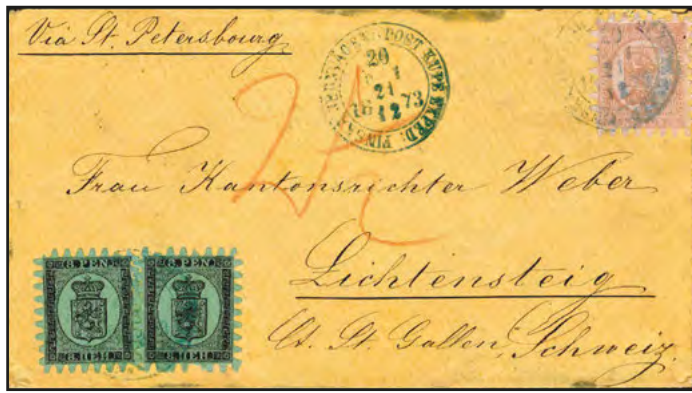 Via St. Petersbourg
FINSKA JERNVÄGENS POST KUPE EXPED:
20
21
18 12 73
Frau Kantonsrichter Weber
Lichtensteig
Ct. St. Gallen, Schweiz.
8. PEN. 8. PEN.
8. ПЕН. 8. ПЕН.